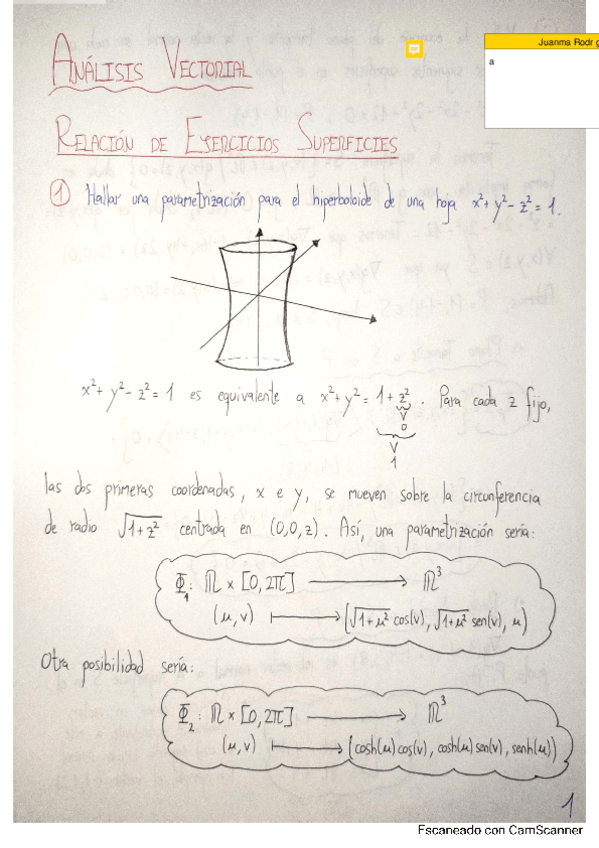 Juanma Rodrig
a
ANÁLISIS VECTORIAL
RELACIÓN DE EJERCICIOS SUPERFICIES
① Hallar una parametrización para el hiperboloide de una hoja x²+y²-z²=1.
x²+y²-z²=1 es equivalente a x²+y²=1+z². Para cada z fijo,
V
0
V
1
las dos primeras coordenadas, x e y, se mueven sobre la circunferencia
de radio √1+z² centrada en (0,0,z). Así, una parametrización sería:
Φ₁: ℝ×[0,2π] ⟶ ℝ³
(u,v) ⟼ (√1+u² cos(v), √1+u² sen(v), u)
Otra posibilidad sería:
Φ₂: ℝ×[0,2π] ⟶ ℝ³
(u,v) ⟼ (cosh(u)cos(v), cosh(u)sen(v), senh(u))
1
Escaneado con CamScanner